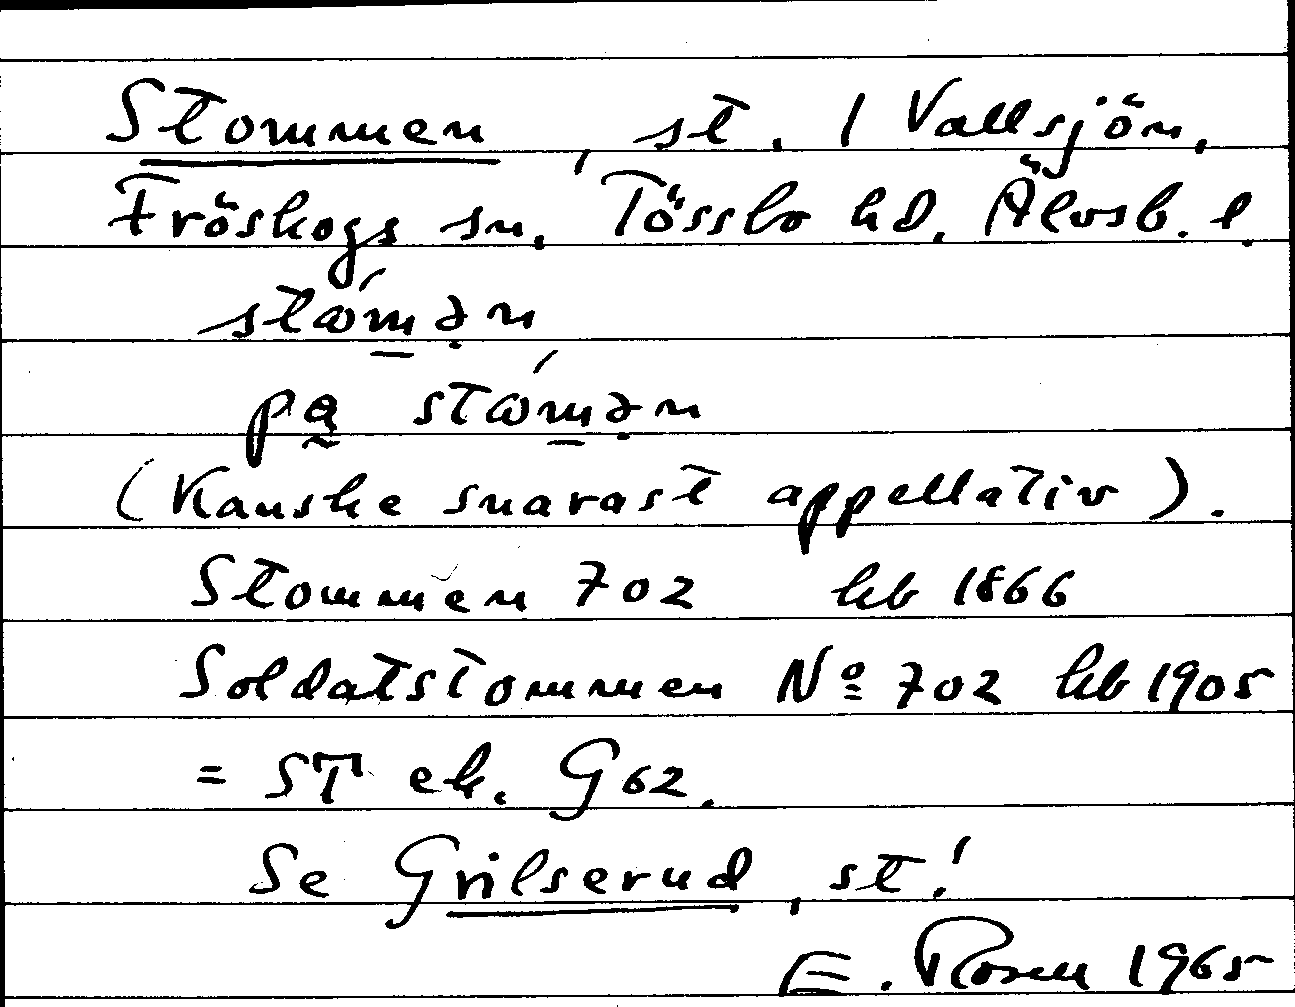 Stommen, st. / Vallsjön,
Fröskogs sn. Tössbo hd. Älvsb. l.
stǿmən
pa stǿmən
(Kanske snarast appellativ).
Stommen 702 hb 1866
Soldatstommen Nº 702 hb 1905
= ST ek. G62.
Se Grilserud, st!
E. Rosen 1965